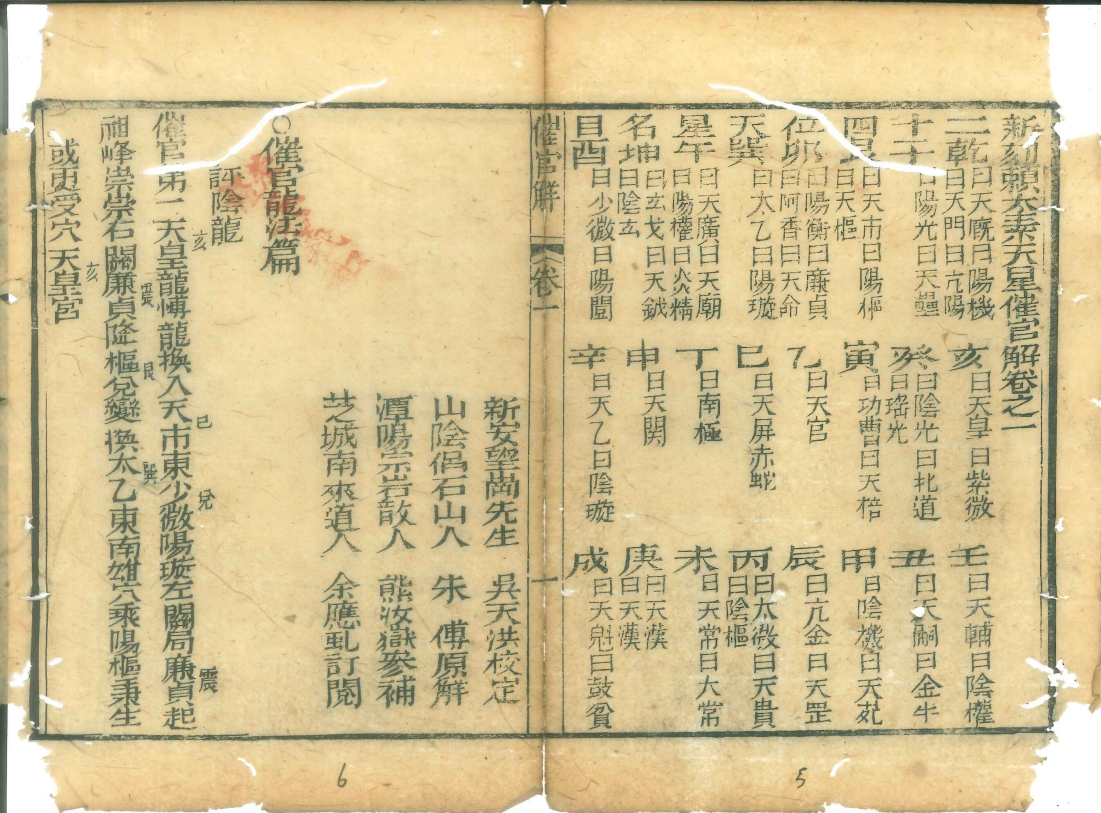 新刻賴太素天星催官解卷之一
二 乾 曰天廐曰陽機曰天門曰亢陽 亥 曰天皇曰紫微 壬 曰天輔曰陰權
十 曰陽光曰天壘 癸 曰陰光曰北道曰瑤光 丑 曰天嗣曰金牛
四 艮 曰天市曰陽樞曰天樞 寅 曰功曹曰天棓 甲 曰陰機曰天苑
位 卯 曰陽衡曰廉貞曰阿香曰天命 乙 曰天官 辰 曰亢金曰天罡
天 巽 曰太乙曰陽璇 巳 曰天屏赤蛇 丙 曰太微曰天貴曰陰樞
星 午 曰天廣曰天廟曰陽權曰炎精 丁 曰南極 未 曰天常曰大常
名 坤 曰玄戈曰天鉞曰陰玄 申 曰天関 庚 曰天漢曰天漢
目 酉 曰少微曰陽闓 辛 曰天乙曰陰璇 戍 曰天魁曰鼓盆
催官解 卷一 一
新安望崗先生 吳天洪校定
山陰侶石山人 朱 傅原解
潭陽宗岩散人 熊汝嶽參補
芝城南來道人 余應虬訂閱
○催官龍法篇
評陰龍
催官第一天皇龍愽龍換入天市東少微陽璇左關局廉貞起
亥 巳 兌 震
祖峰崇崇石關廉貞降樞兌變換太乙東南姐穴乘陽樞秉生
震 艮 巽
或更受穴天皇宮
亥
5
6